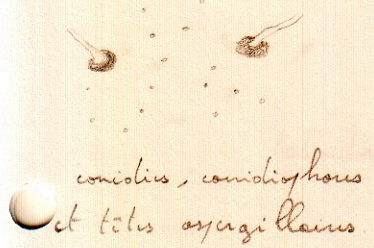 conidies, conidiophores
et têtes aspergillaires